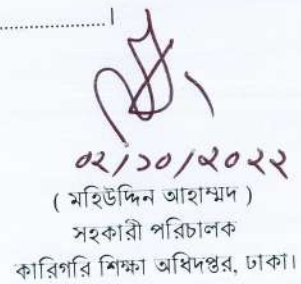 ..............................।
০২/১০/২০২২
( মহিউদ্দিন আহাম্মদ )
সহকারী পরিচালক
কারিগরি শিক্ষা অধিদপ্তর, ঢাকা।